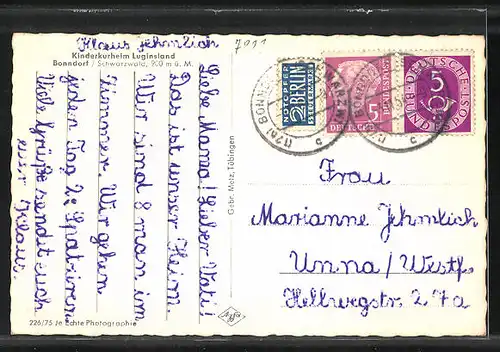 Klaus Jehmlich
Kinderkurheim Luginsland
Bonndorf / Schwarzwald, 900 m ü. M.
Liebe Mama! Lieber Vati!
Das ist unser Heim.
Wir sind 8 man im
Zimmer. Wir gehen
jeden Tag 2x Spatziren.
Viele Grüße sendet euch
euer Klaus.
226/75 Je Echte Photographie
Gebr. Metz, Tübingen
NOTOPFER
2 BERLIN
STEUERMARKE
DEUTSCHE BUNDESPOST
5
DEUTSCHE BUNDESPOST
5
Frau
Marianne Jehmlich
Unna / Westf.
Hellwegstr. 27a